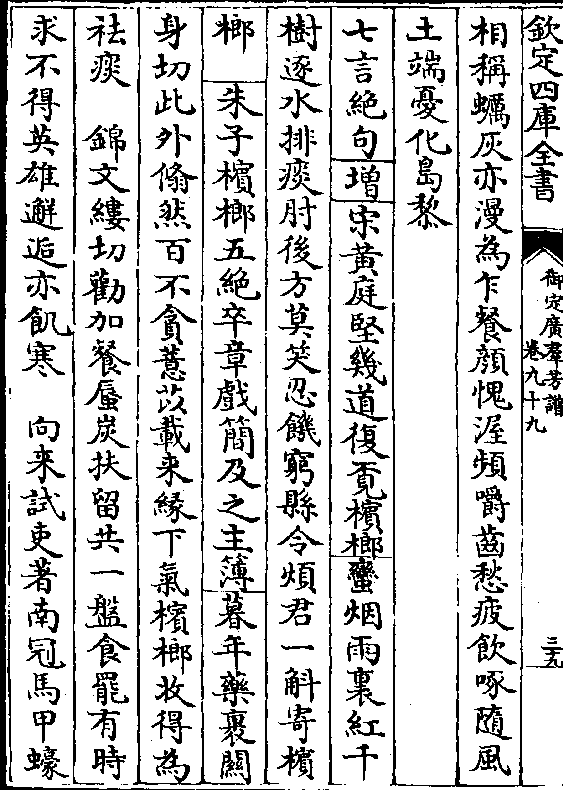 欽定四庫全書
御定廣羣芳譜
卷九十九
三十九
相稱蠣灰亦漫為乍餐顏愧渥頻嚼齒愁疲飲啄隨風
土端憂化島黎
七言絶句增宋黄庭堅幾道復覔檳榔蠻烟雨裏紅千
樹逐水排痰肘後方莫笑忍饑窮縣令煩君一斛寄檳
榔 朱子檳榔五絶卒章戲簡及之主薄暮年藥裹闗
身切此外翛然百不貪薏苡載来縁下氣檳榔收得為
祛痰 錦文縷切勸加餐蜃炭扶留共一盤食罷有時
求不得英雄邂逅亦飢寒 向来試吏著南冠馬甲蠔